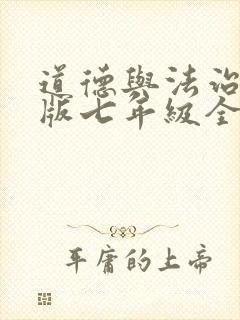 道德與法治
版七年級全
平庸的上帝